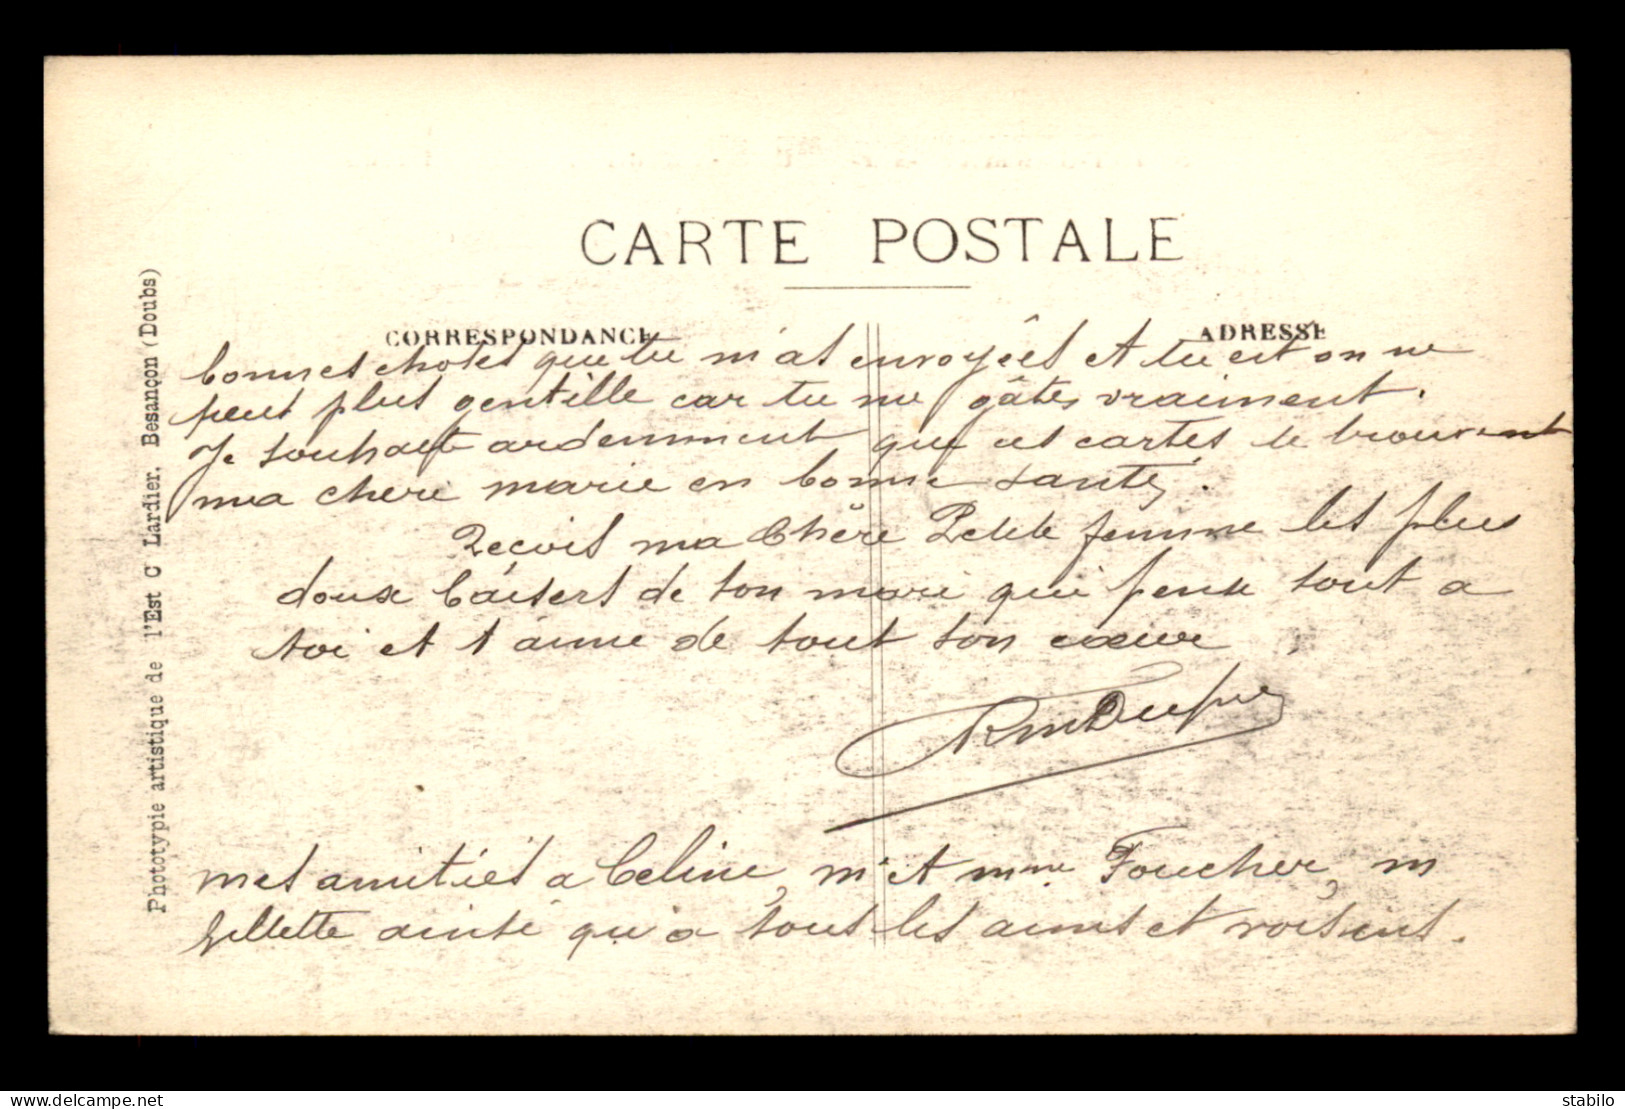 CARTE POSTALE
CORRESPONDANCE
ADRESSE
bonnes choses que tu m'as envoyées et tu est on ne
peut plus gentille car tu me gâtes vraiment.
Je souhaite ardemment que ces cartes te trouvent
ma chere marie en bonne santé.
Reçois ma Chère Petite femme les plus
doux baisers de ton mari qui pense tout a
toi et t'aime de tout son cœur
mes amitiés a Celine, mr et mme Foucher, m
Gillette ainsi qu'a tous les amis et voisins.
Phototypie artistique de l'Est C Lardier. Besançon (Doubs)
www.delcampe.net
stabilo